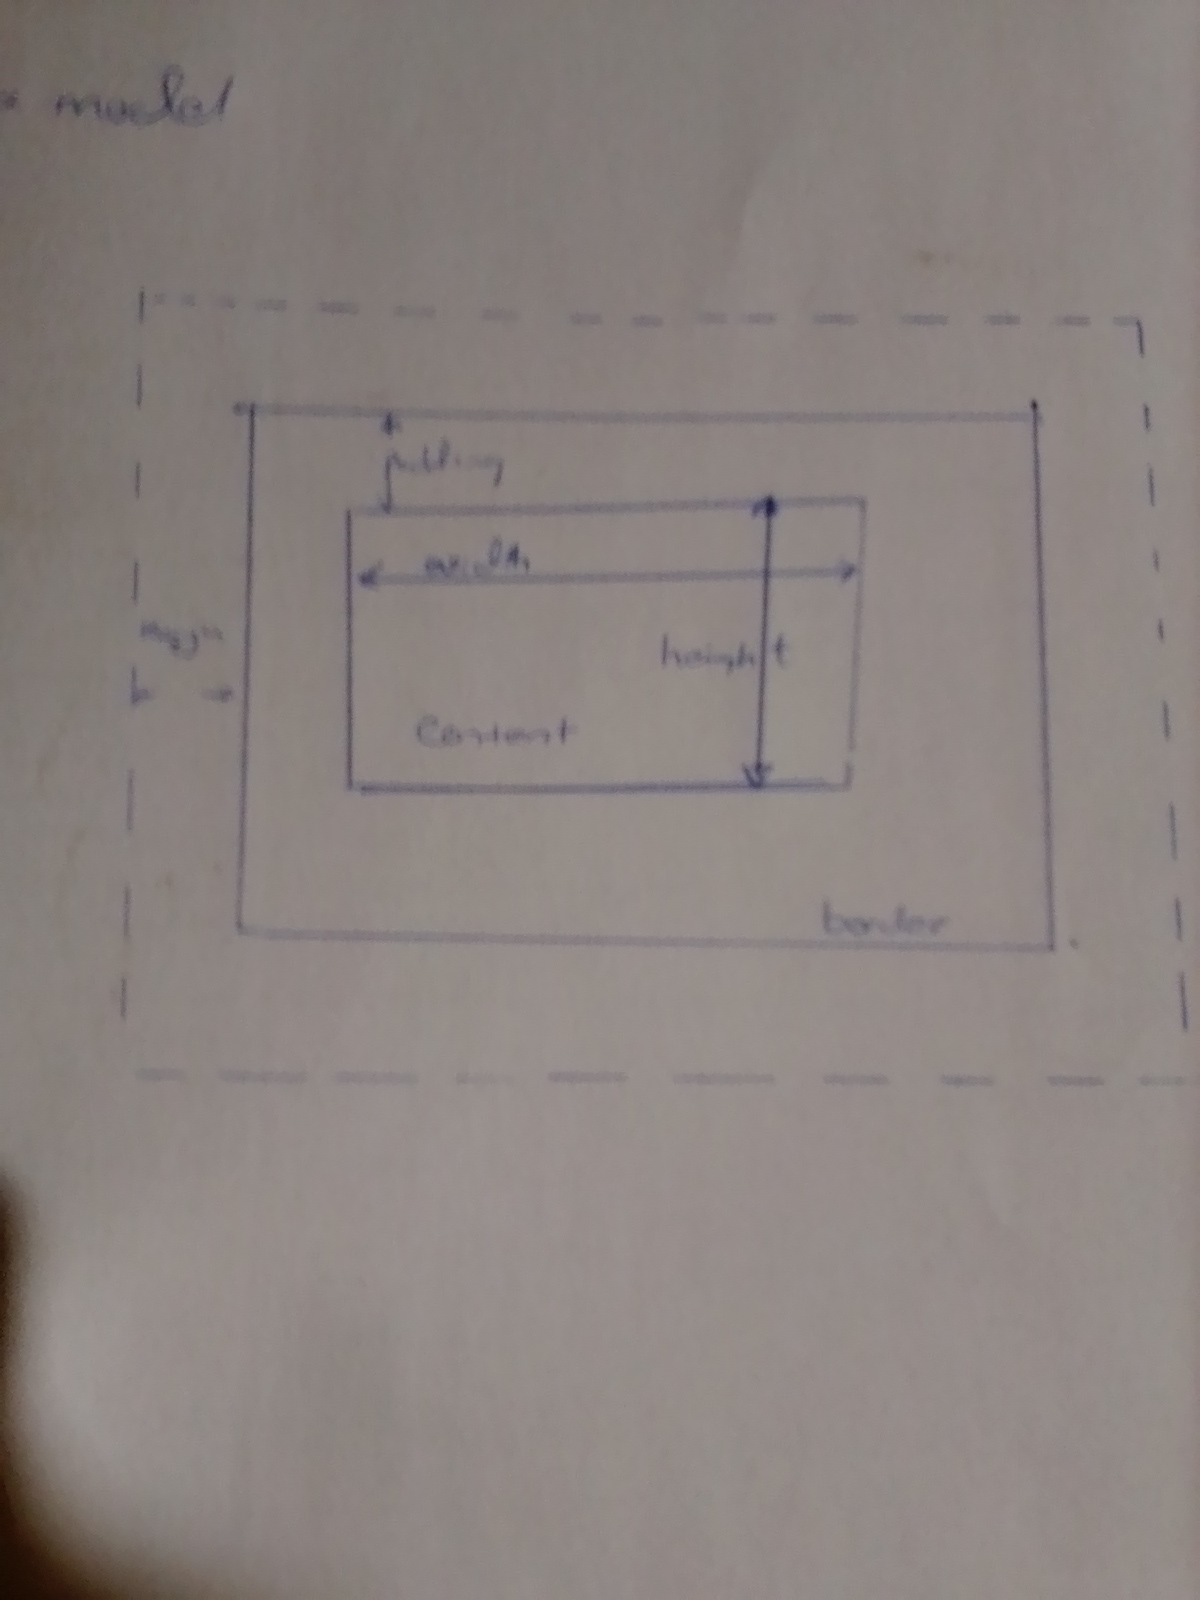 model
padding
width
margin
height
Content
border